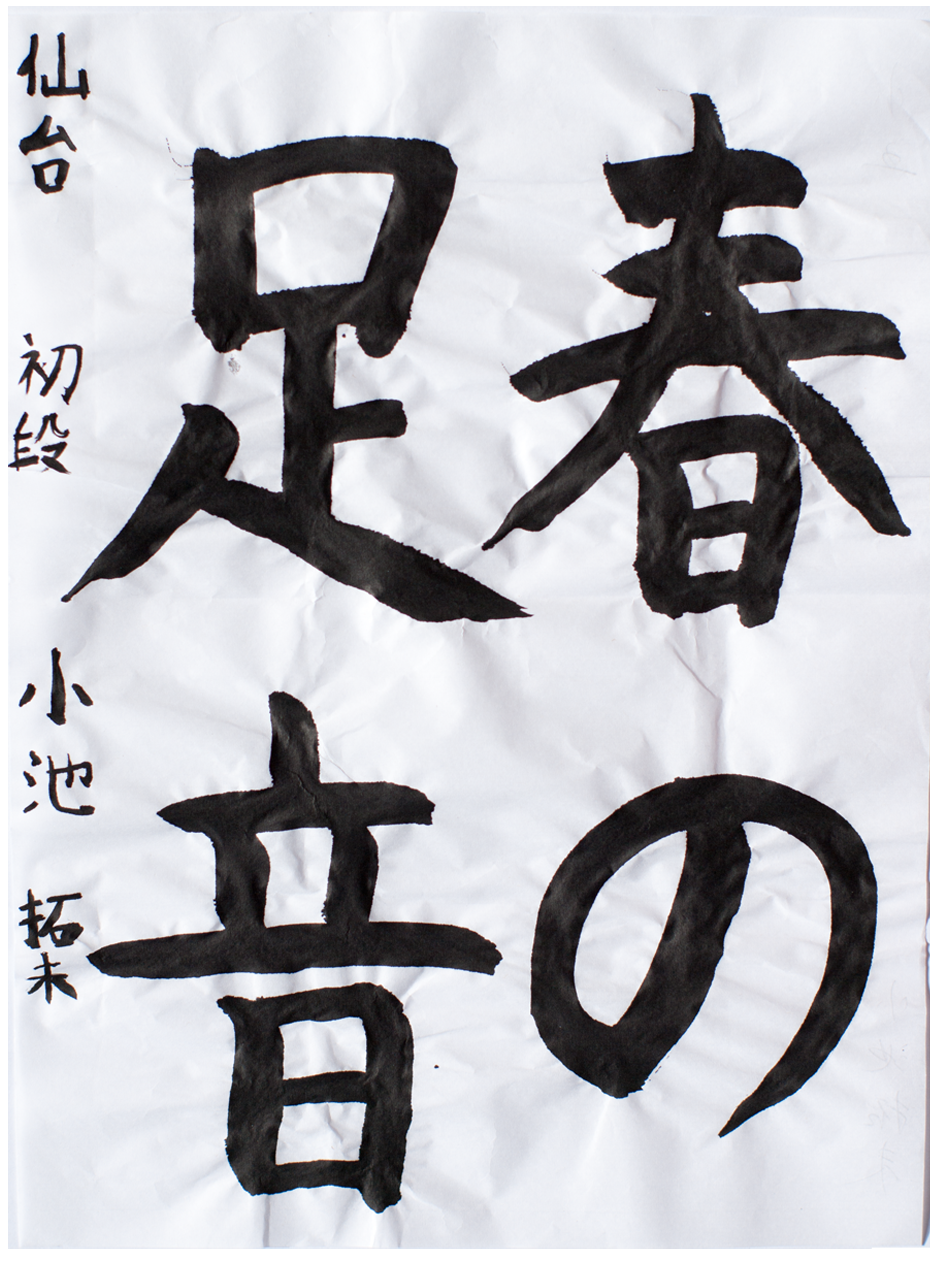 春の
足音
仙台 初段 小池 拓未